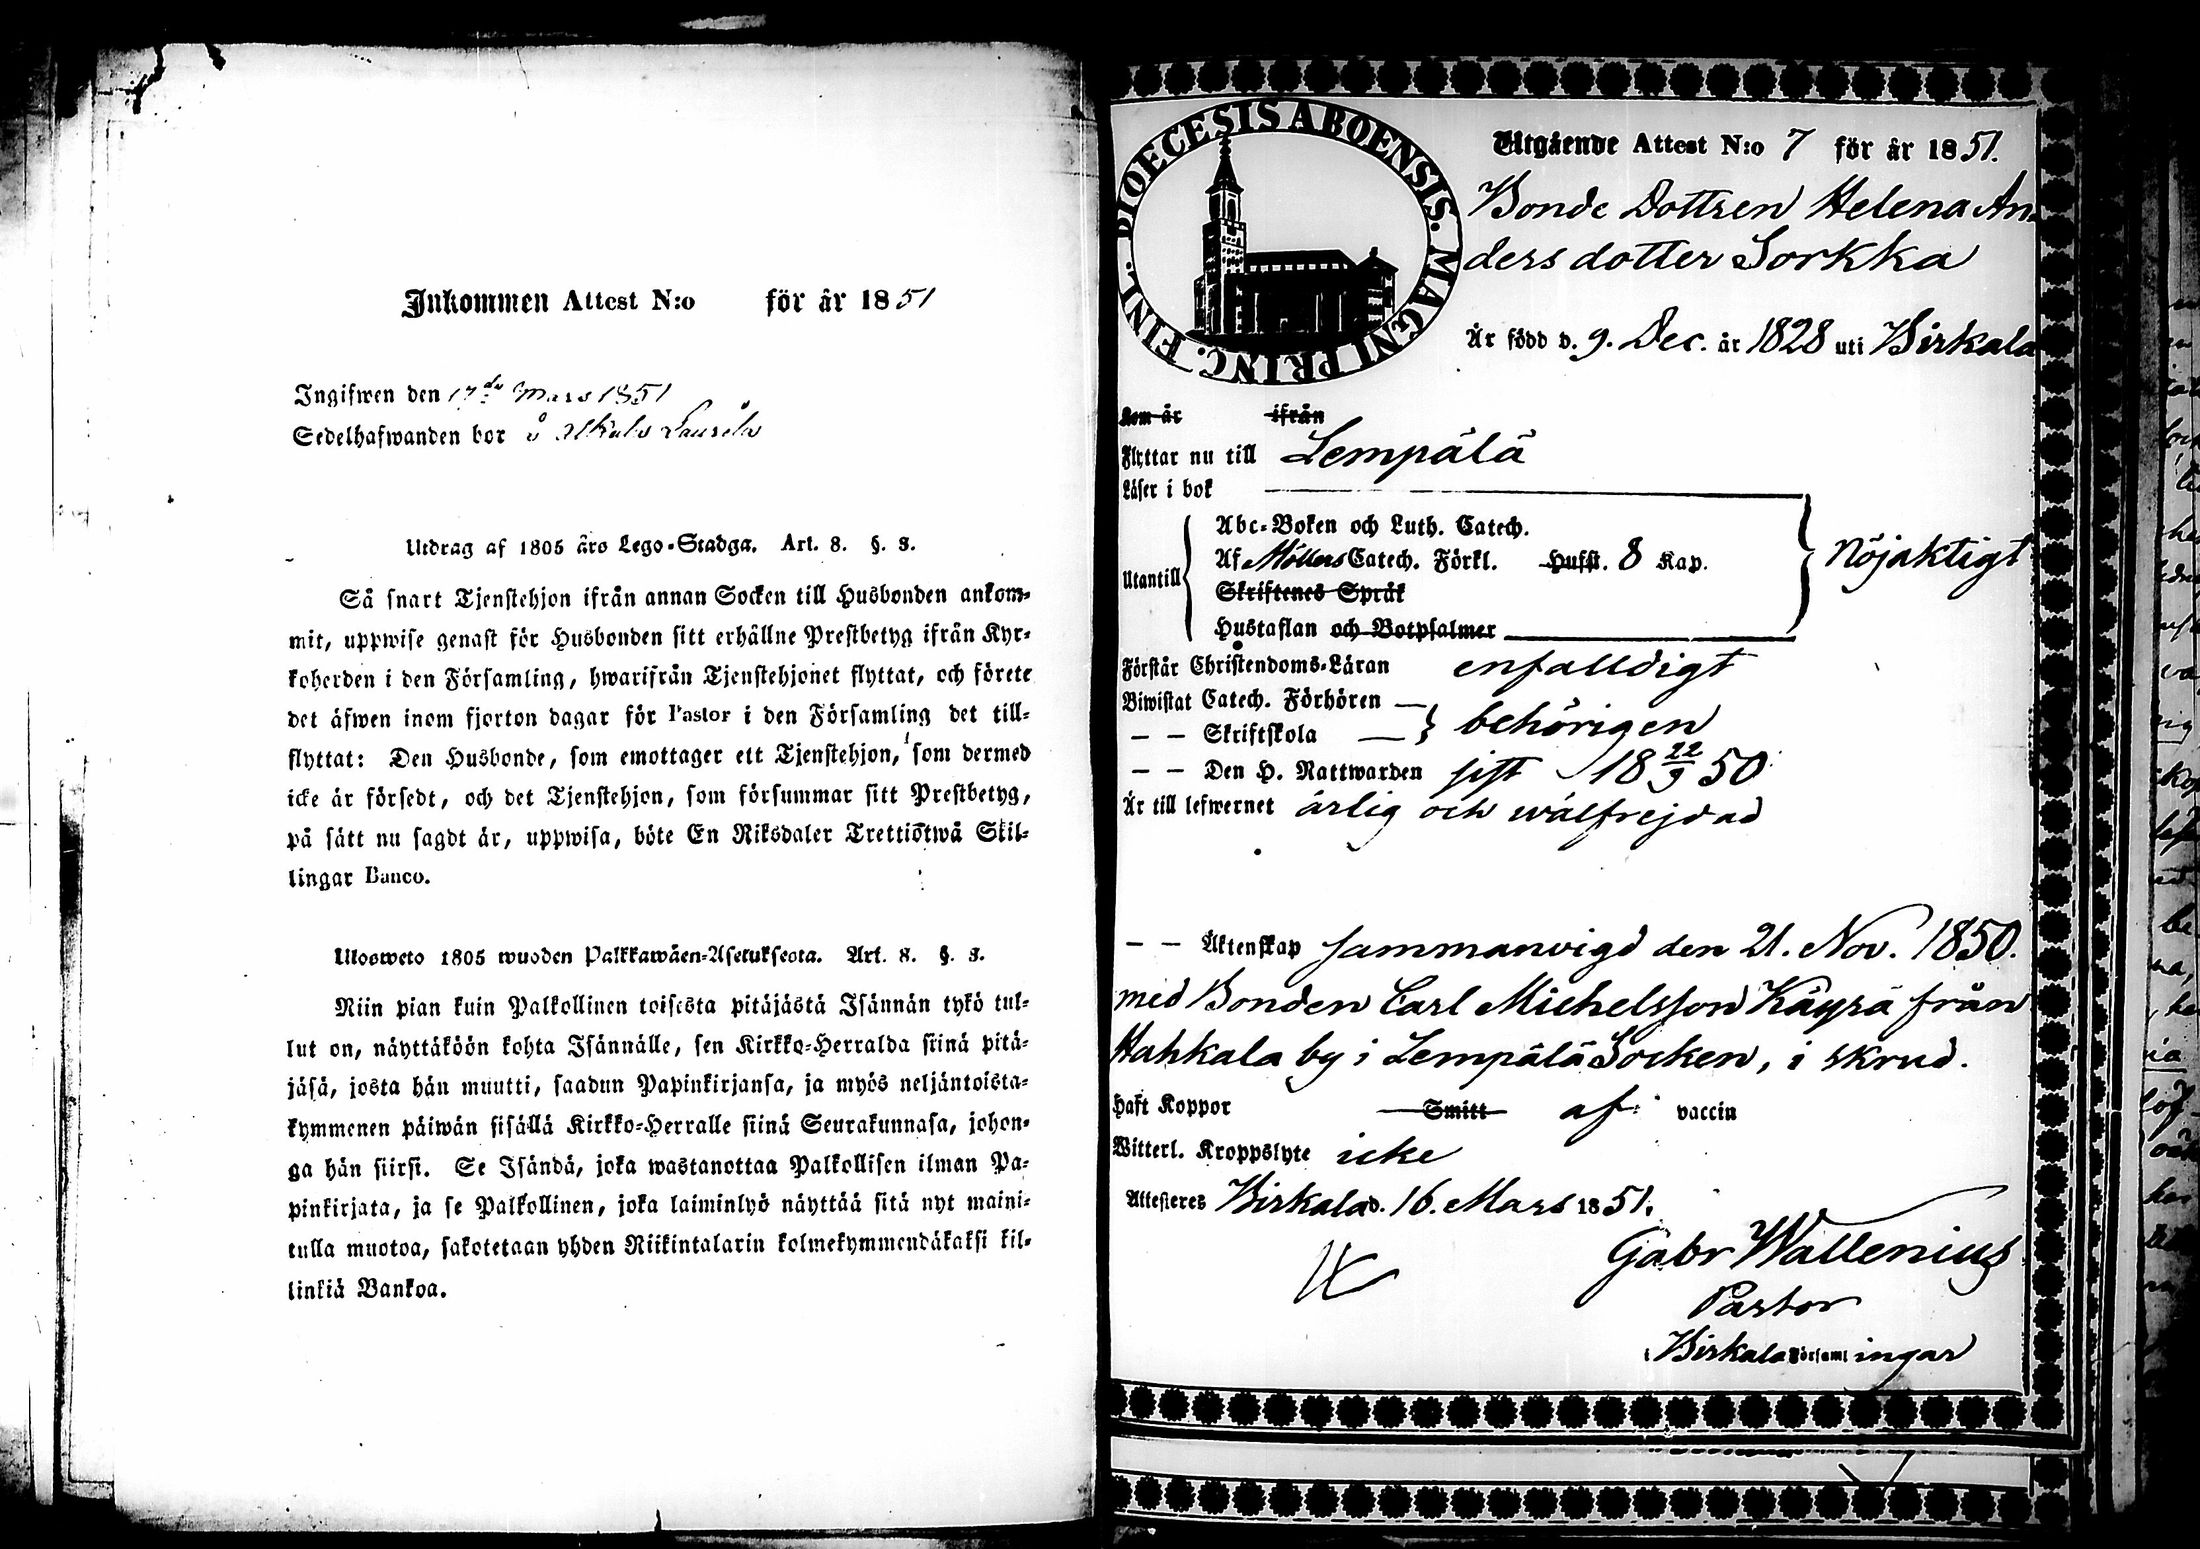 Inkommen Attest N:o för år 1851
Ingifwen den 17de Mars 1851
Sedelhafwanden bor å
Utdrag af 1805 års Lego-Stadga. Art. 8. §. 3.
Så snart Tjenstehjon ifrån annan Socken till Husbonden ankom-
mit, uppwise genast för Husbonden sitt erhållne Prestbetyg ifrån Kyr-
koherden i den Församling, hwarifrån Tjenstehjonet flyttat, och förete
det äfwen inom fjorton dagar för Pastor i den Församling det till-
flyttat: Den Husbonde, som emottager ett Tjenstehjon, som dermed
icke är försedt, och det Tjenstehjon, som försummar sitt Prestbetyg,
på sätt nu sagdt är, uppwisa, böte En Riksdaler Trettiotwå Skil-
lingar Banco.
Ulosweto 1805 wuoden Palkkawäen-Asetuksesta. Art. 8. §. 3.
Niin pian kuin Palkollinen toisesta pitäjästä Isännän tykö tul-
lut on, näyttäköön kohta Isännälle, sen Kirkko-Herralda siinä pitä-
jäsä, josta hän muutti, saadun Papinkirjansa, ja myös neljäntoista-
kymmenen päiwän sisällä Kirkko-Herralle siinä Seurakunnasa, johon-
ga hän siirsi. Se Isändä, joka wastanottaa Palkollisen ilman Pa-
pinkirjata, ja se Palkollinen, joka laiminlyö näyttää sitä nyt maini-
tulla muotoa, sakotetaan yhden Riikintalarin kolmekymmendäkaksi kil-
linkiä Bankoa.
DIOECESIS ABOENSIS. MAGNI PRINC. FINL.
Utgående Attest N:o 7 för år 1851.
Bonde Dottren Helena An-
dersdotter Sorkka
Är född d. 9. Dec. år 1828 uti Birkala
Kom år ifrån
Flyttar nu till Lempälä
Läser i bok
Utantill
Abc-Boken och Luth. Catech.
Af Möllers Catech. Förkl. Husst. 8 Kap.
Skriftenes Språk
Hustaflan och Botpsalmer
nöjaktigt
Förstår Christendoms-Läran enfalldigt
Biwistat Catech. Förhören
— — Skriftskola behörigen
— — Den H. Nattwarden sist 18 22/9 50
Är till lefwernet ärlig och wälfrejdad
— — Äktenskap sammanvigd den 21. Nov. 1850.
med Bonden Carl Michelsson Käyrä från
Hahkala by i Lempälä Socken, i skrud.
Haft Koppor Smitt af vaccin
Witterl. Kroppslyte icke
Attesteres Birkala d. 16. Mars 1851.
Gabr Wallenius
Pastor
i Birkala Församlingar